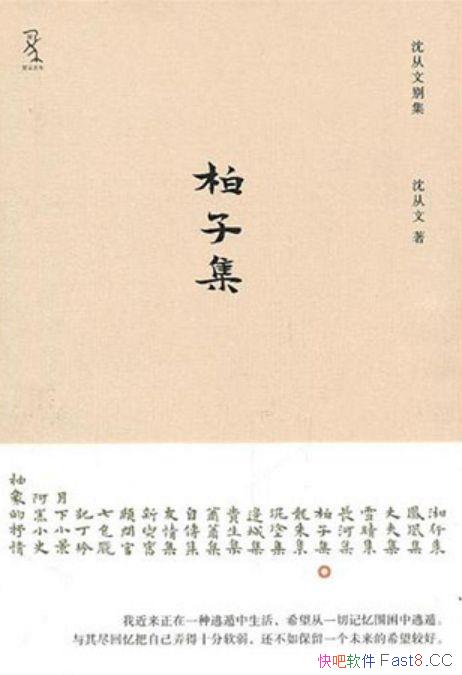 沈从文别集
沈从文 著
柏子集
湘行集
凤凰集
丈夫集
雪晴集
长河集
柏子集
龙朱集
泥涂集
边城集
贵生集
萧萧集
自传集
友情集
新与旧
顾问官
七色魇
记丁玲
月下小景
阿黑小史
抽象的抒情
我近来正在一种逃遁中生活，希望从一切记忆围困中逃遁。
与其尽回忆把自己弄得十分软弱，还不如保留一个未来的希望较好。
快吧软件 Fast8.CC